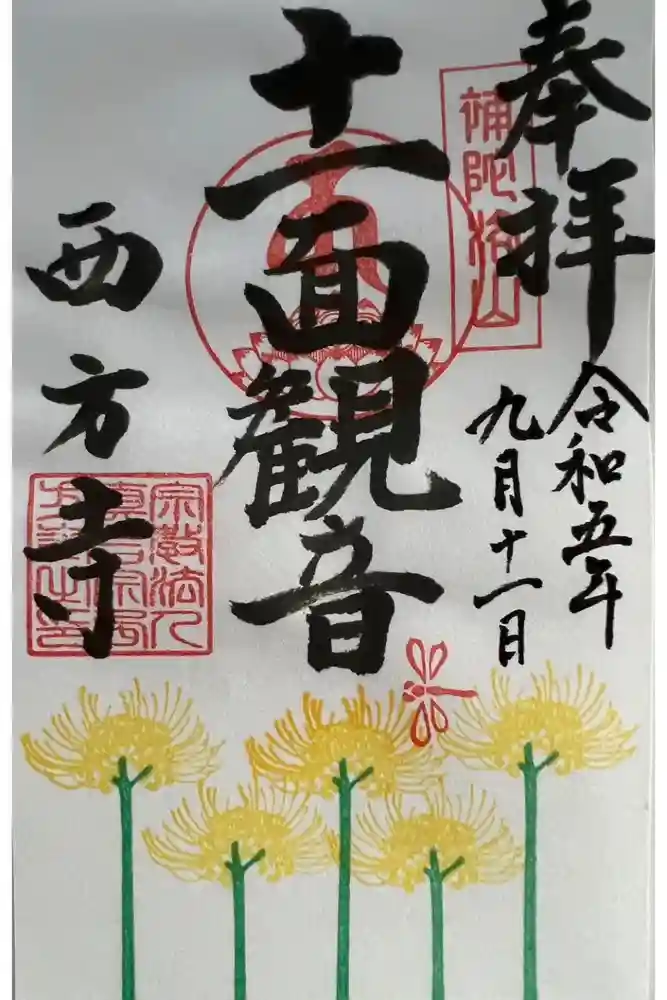 奉拝
補陀洛山
令和五年
九月十一日
十一面観音
西方寺